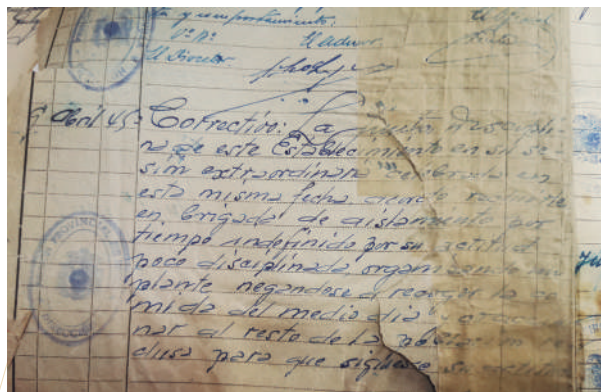 y comportamiento.
Vº Bº El Admor.
El Director
9 Abril 45= Correctivo: La Junta Discipli-
na de este Establecimiento en su se-
sión extraordinaria celebrada en
esta misma fecha, acordó
en brigada de aislamiento por
tiempo indefinido por su actitud
poco disciplinada, organizando un
plante negandose a recoger la co-
mida del medio dia
nar al resto de la población re-
clusa para que siguiese su